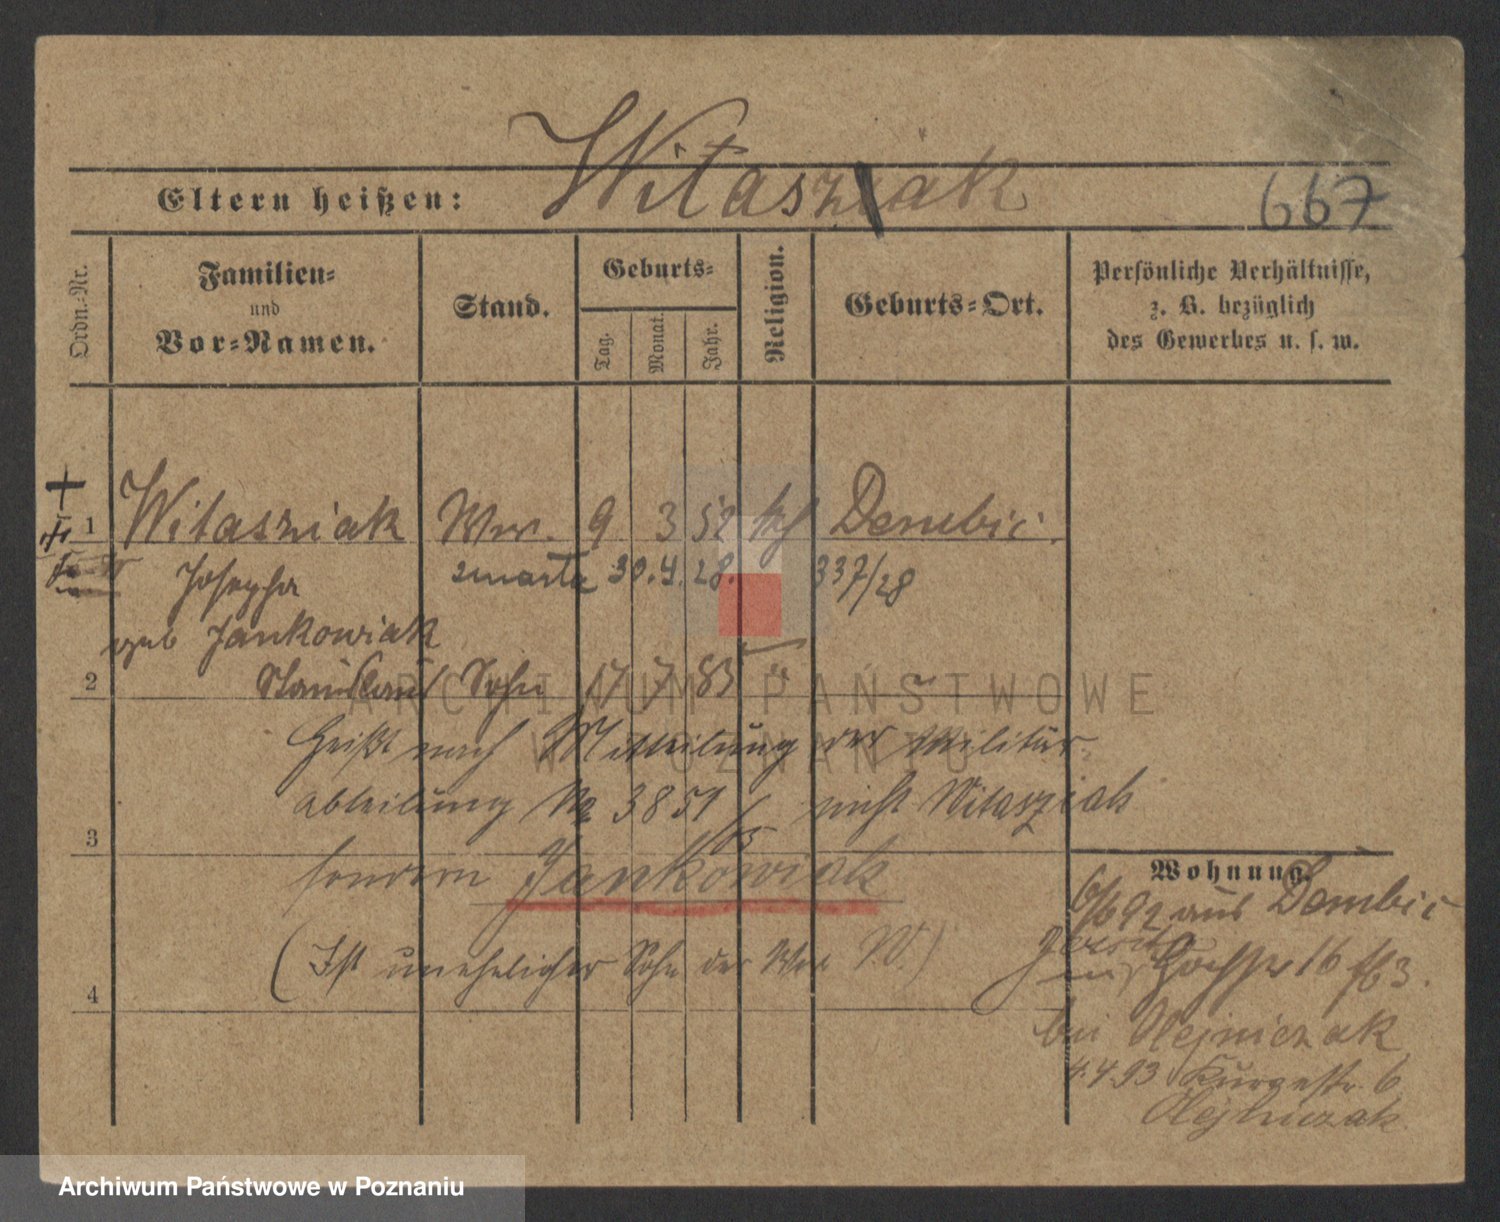 Witasziak
Eltern heißen:
667
Ordn.-Nr.
Familien-
und
Vor-Namen.
Stand.
Geburts-
Tag.
Monat.
Jahr.
Religion.
Geburts-Ort.
Persönliche Verhältnisse,
z. B. bezüglich
des Gewerbes u. s. w.
1 Witasziak Ww. 9 3 52 kth Dembic.
Josepha zmarła 30.4.28. 337/28
geb Jankowiak
2 Stanislaus Sohn 17 7 83 "
Heißt nach Mitteilung der Militär-
abteilung No 3851/05 nicht Witasziak
3
sondern Jankowiak
(Ist unehelicher Sohn der Wwe W.)
4
Wohnung.
6/6 92 aus Dembic
16
bei Olejniczak
4.4.93 6
Olejniczak
ARCHIWUM PAŃSTWOWE
W POZNANIU
Archiwum Państwowe w Poznaniu